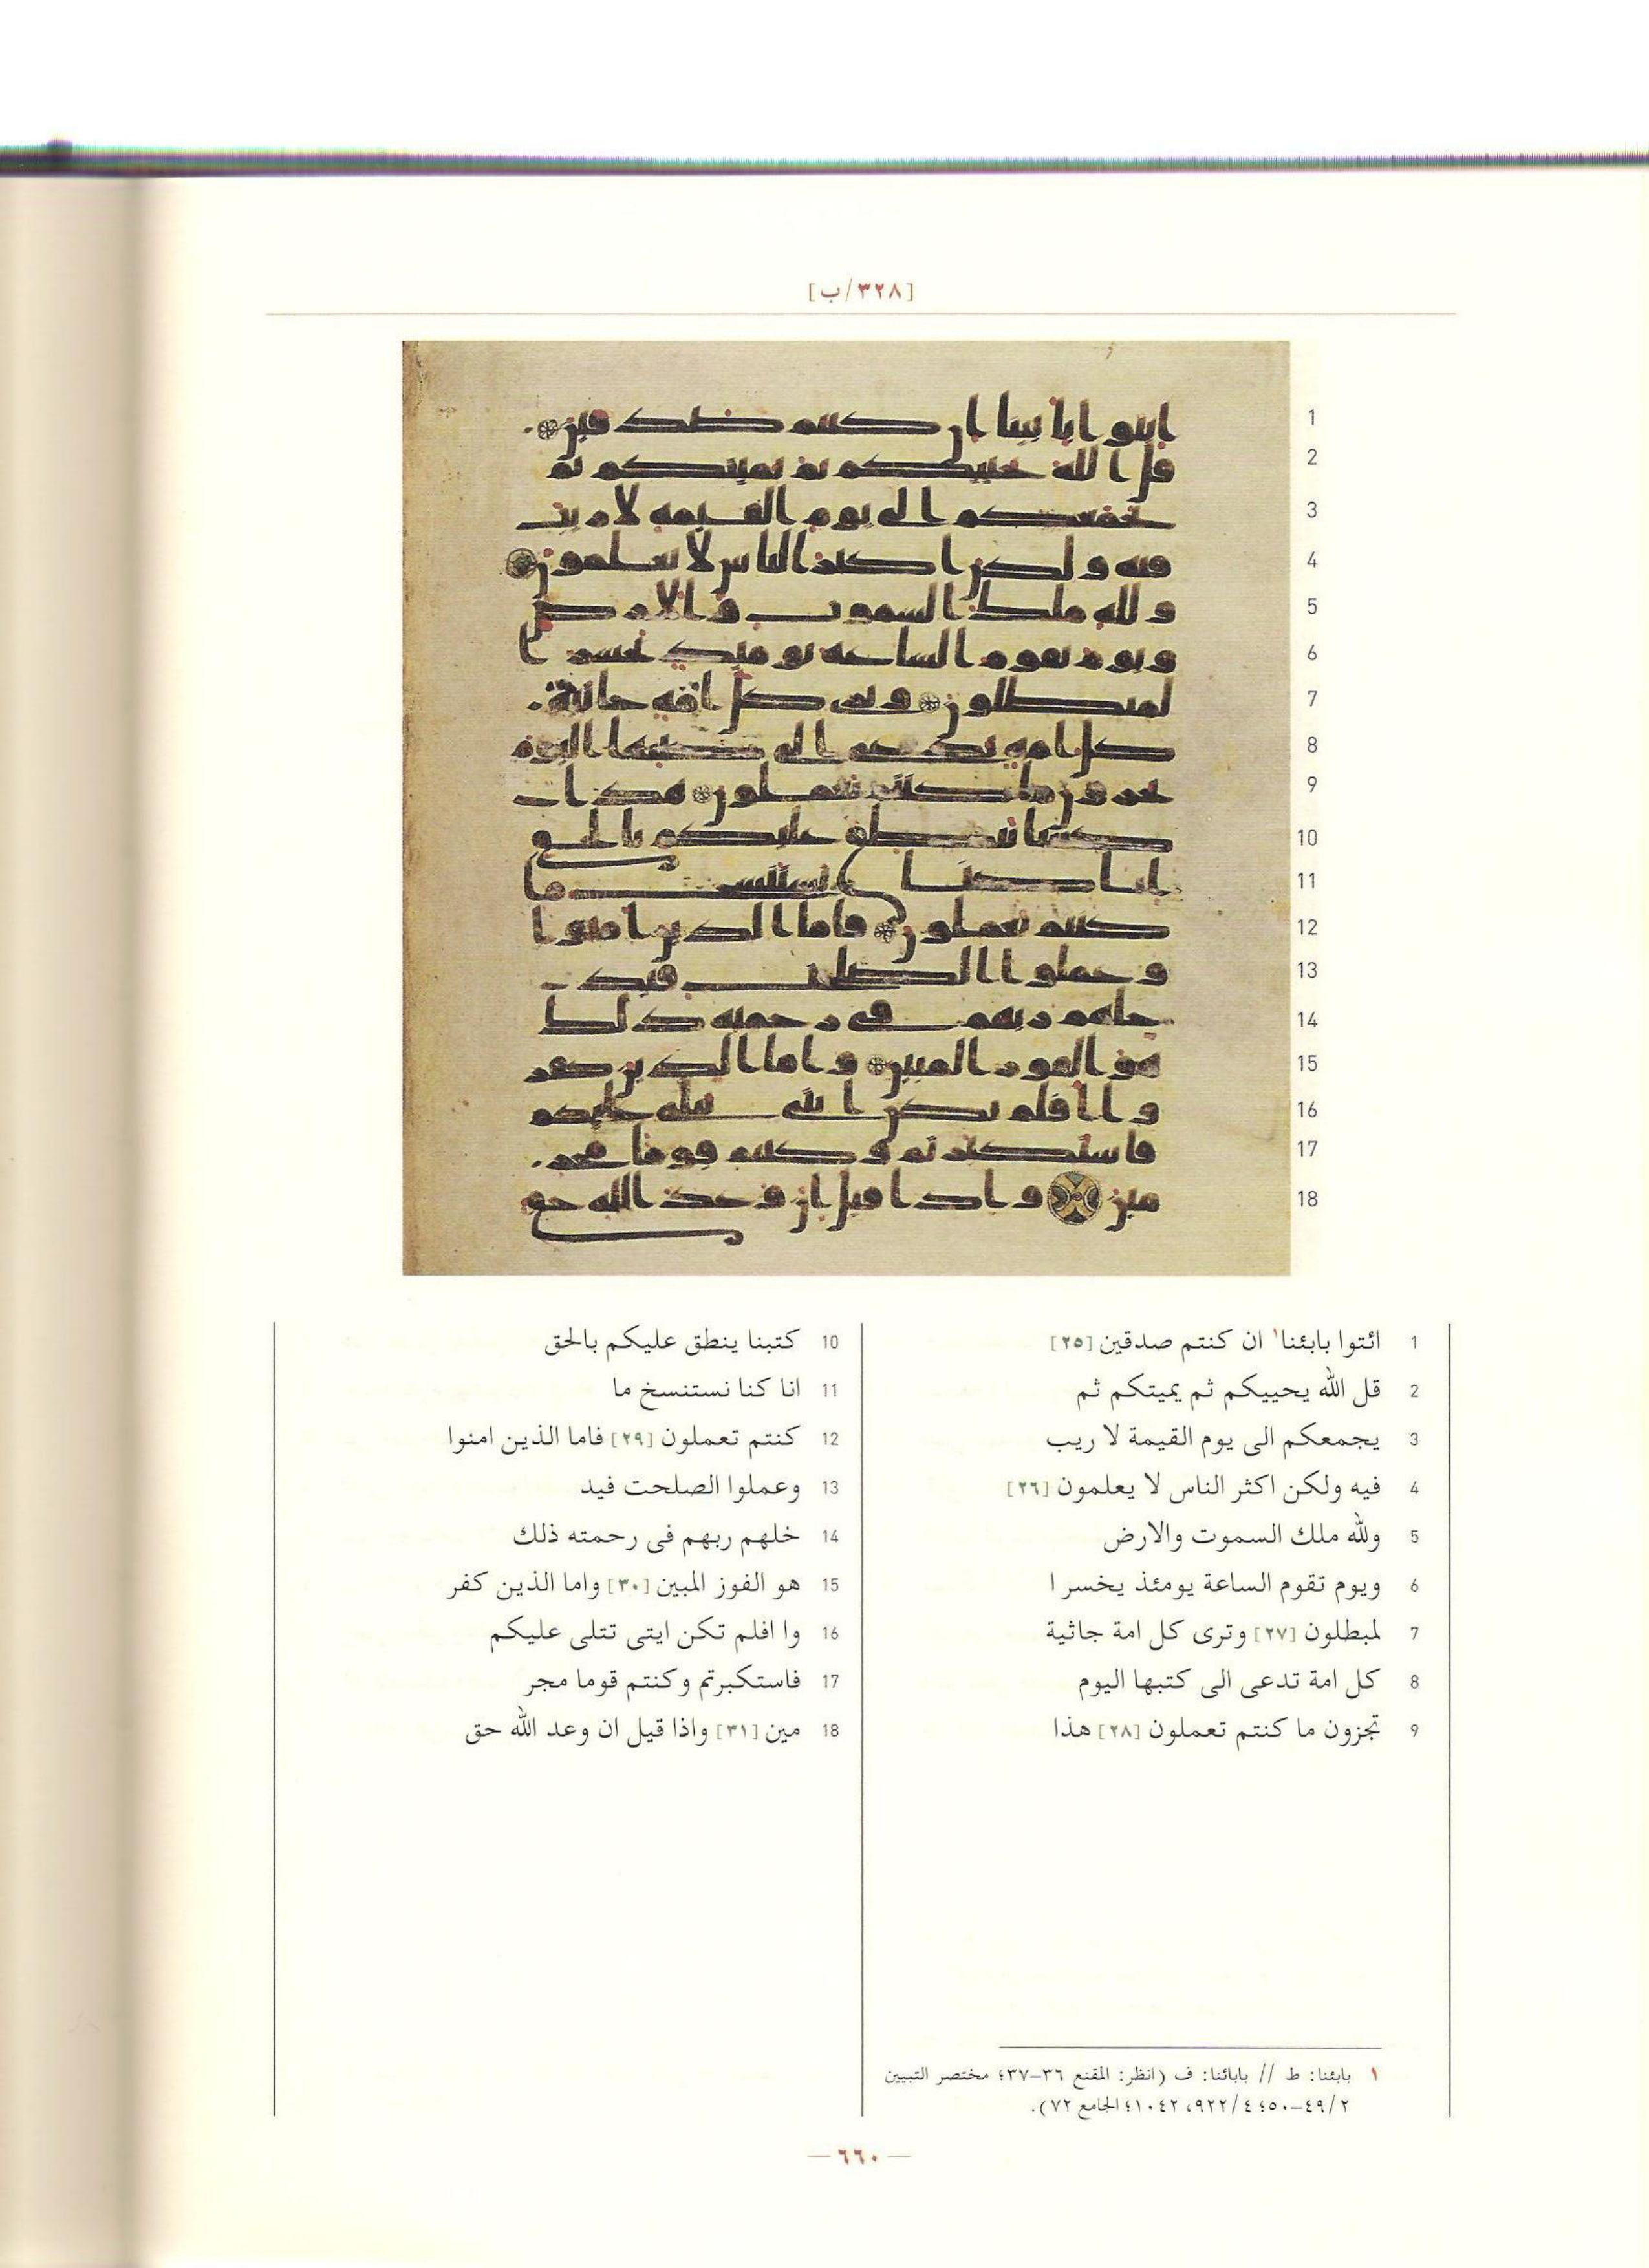 [٣٢٨/ب]
1 ائتوا بابئنا١ ان كنتم صدقين [٢٥]
2 قل الله يحييكم ثم يميتكم ثم
3 يجمعكم الى يوم القيمة لا ريب
4 فيه ولكن اكثر الناس لا يعلمون [٢٦]
5 ولله ملك السموت والارض
6 ويوم تقوم الساعة يومئذ يخسر ا
7 لمبطلون [٢٧] وترى كل امة جاثية
8 كل امة تدعى الى كتبها اليوم
9 تجزون ما كنتم تعملون [٢٨] هذا
10 كتبنا ينطق عليكم بالحق
11 انا كنا نستنسخ ما
12 كنتم تعملون [٢٩] فاما الذين امنوا
13 وعملوا الصلحت فيد
14 خلهم ربهم فى رحمته ذلك
15 هو الفوز المبين [٣٠] واما الذين كفر
16 وا افلم تكن ايتى تتلى عليكم
17 فاستكبرتم وكنتم قوما مجر
18 مين [٣١] واذا قيل ان وعد الله حق
١ بابئنا: ط // بابائنا: ف (انظر: المقنع ٣٦–٣٧؛ مختصر التبيين
٤٩/٢–٥٠؛ ٩٢٢/٤، ١٠٤٢؛ الجامع ٧٢).
— ٦٦٠ —